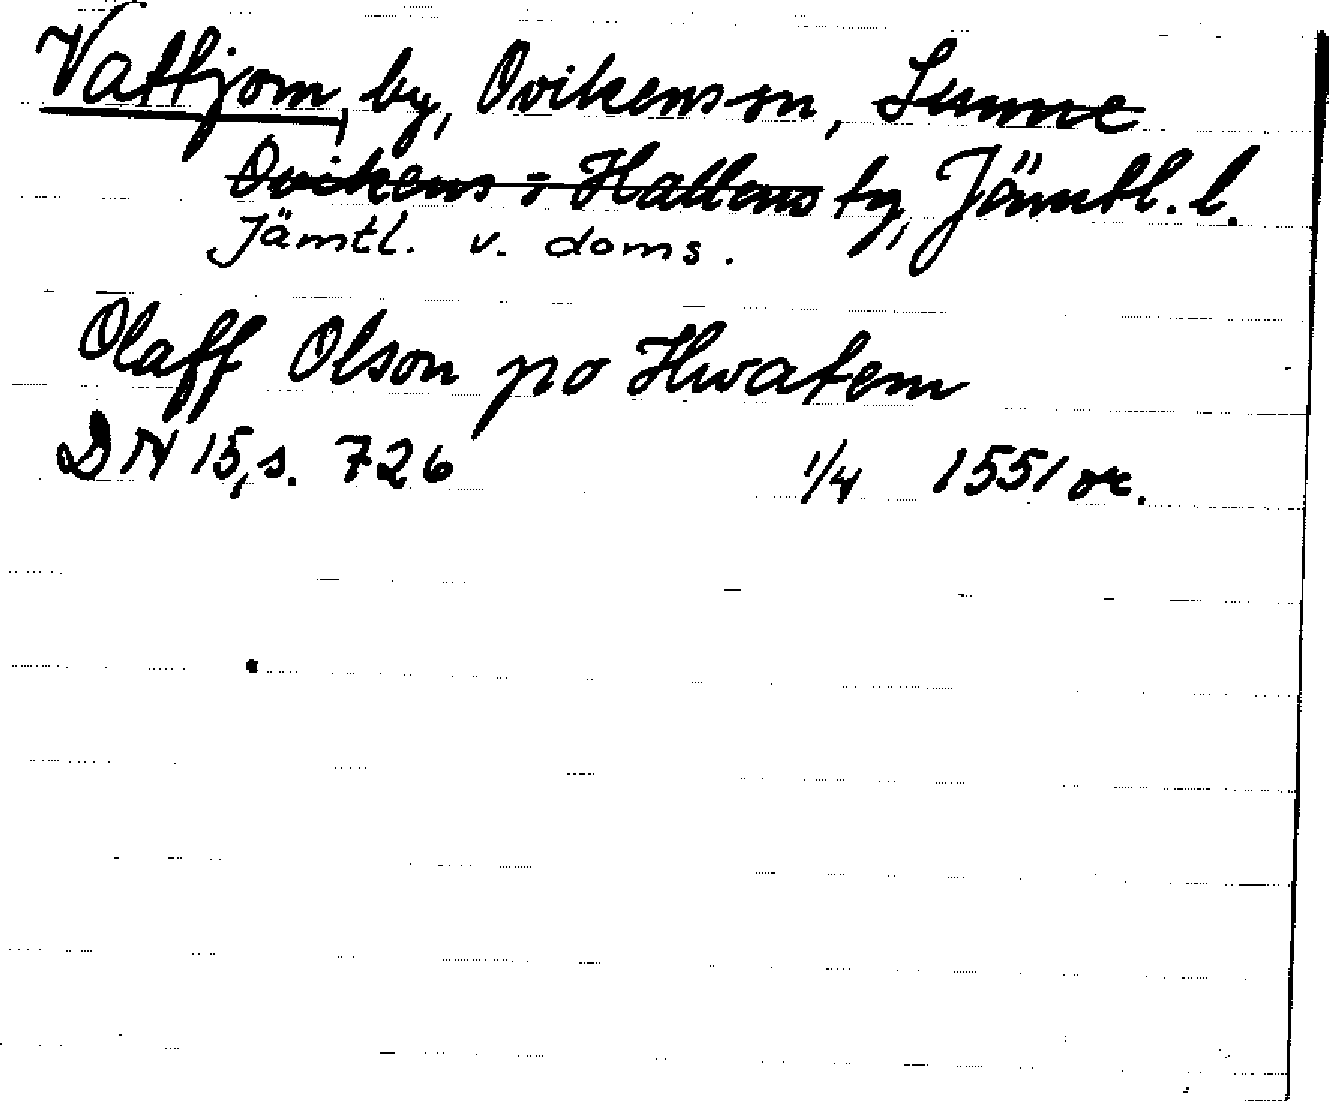 Vattjom, by, Ovikens sn, Sunne
Ovikens o Hallens tg, Jämtl. l.
Jämtl. v. doms.
Olaff Olson po Hwatem
DN 15, s. 726 1/4 1551 or.